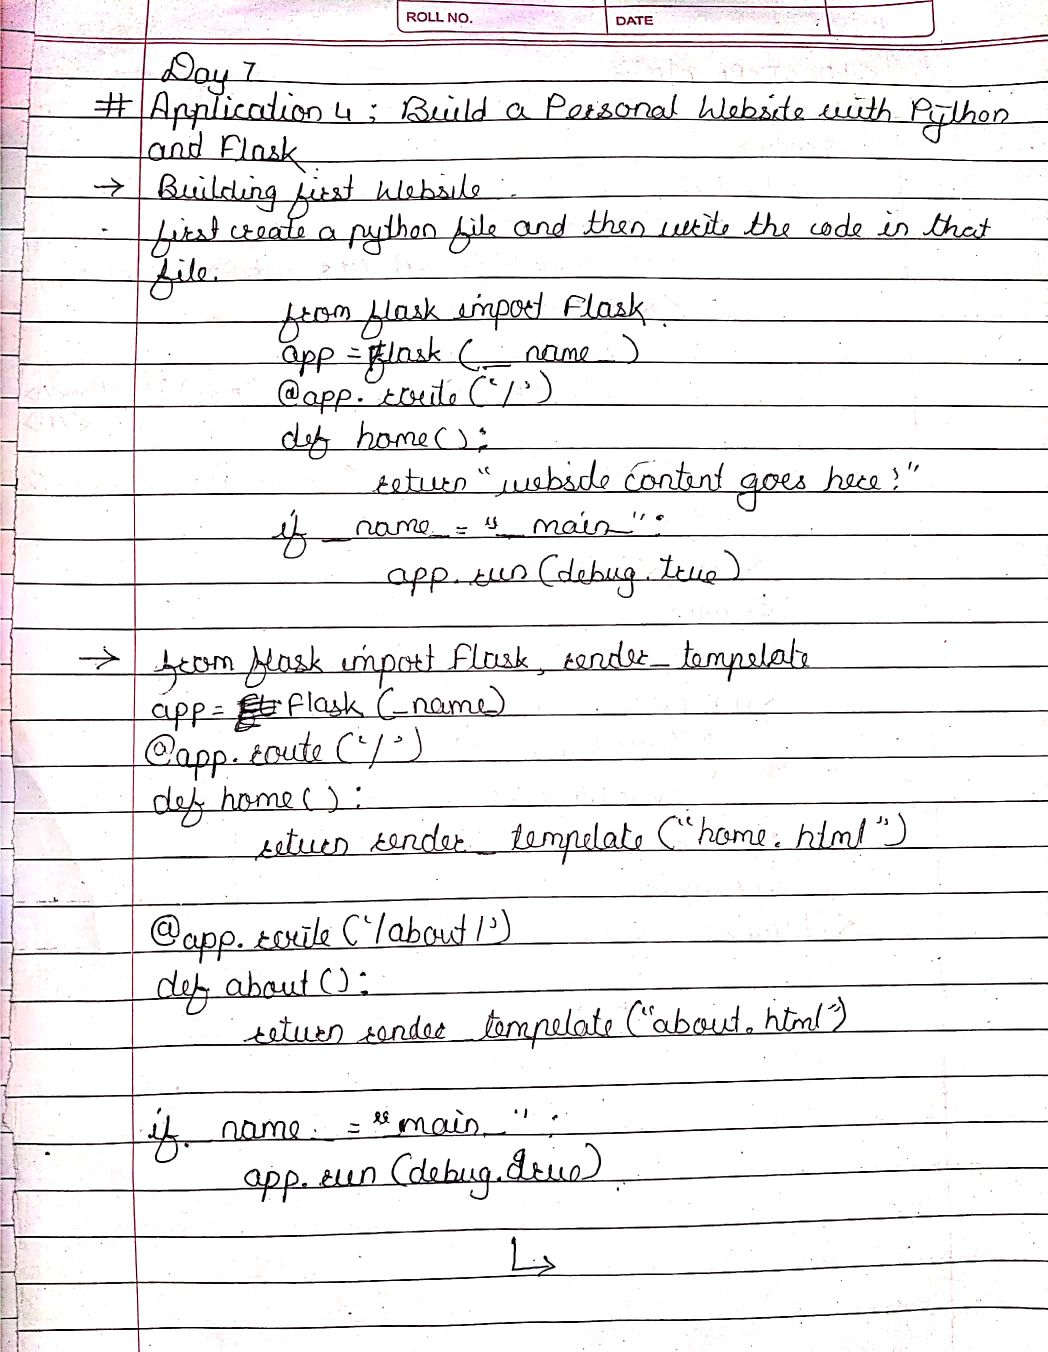 ROLL NO. DATE
Day 7
# Application 4 : Build a Personal Website with Python
and Flask
→ Building first Website.
. first create a python file and then write the code in that
file.
from flask import Flask.
app = Flask (__name__)
@app.route ('/')
def home():
return "website content goes here!"
if __name__ = "__main__":
app.run (debug.true)
→ from flask import Flask, render_tempelate
app = Flask (_name_)
@app.route ('/')
def home( ):
return render_tempelate ("home.html")
@app.route ('/about/')
def about ():
return render_tempelate ("about.html")
if name = "main_":
app.run (debug.true)
↳